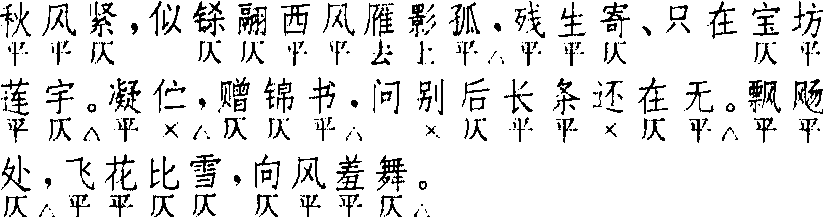 秋风紧,似铩翮西风雁影孤.残生寄、只在宝坊
平平仄 仄仄平平去上平△平平仄 仄平
莲宇。凝伫,赠锦书.问别后长条还在无。飘飏
平仄△平×△仄仄平△ ×仄平平×仄平△平平
处,飞花比雪,向风羞舞。
仄△平平仄仄 仄平平仄△